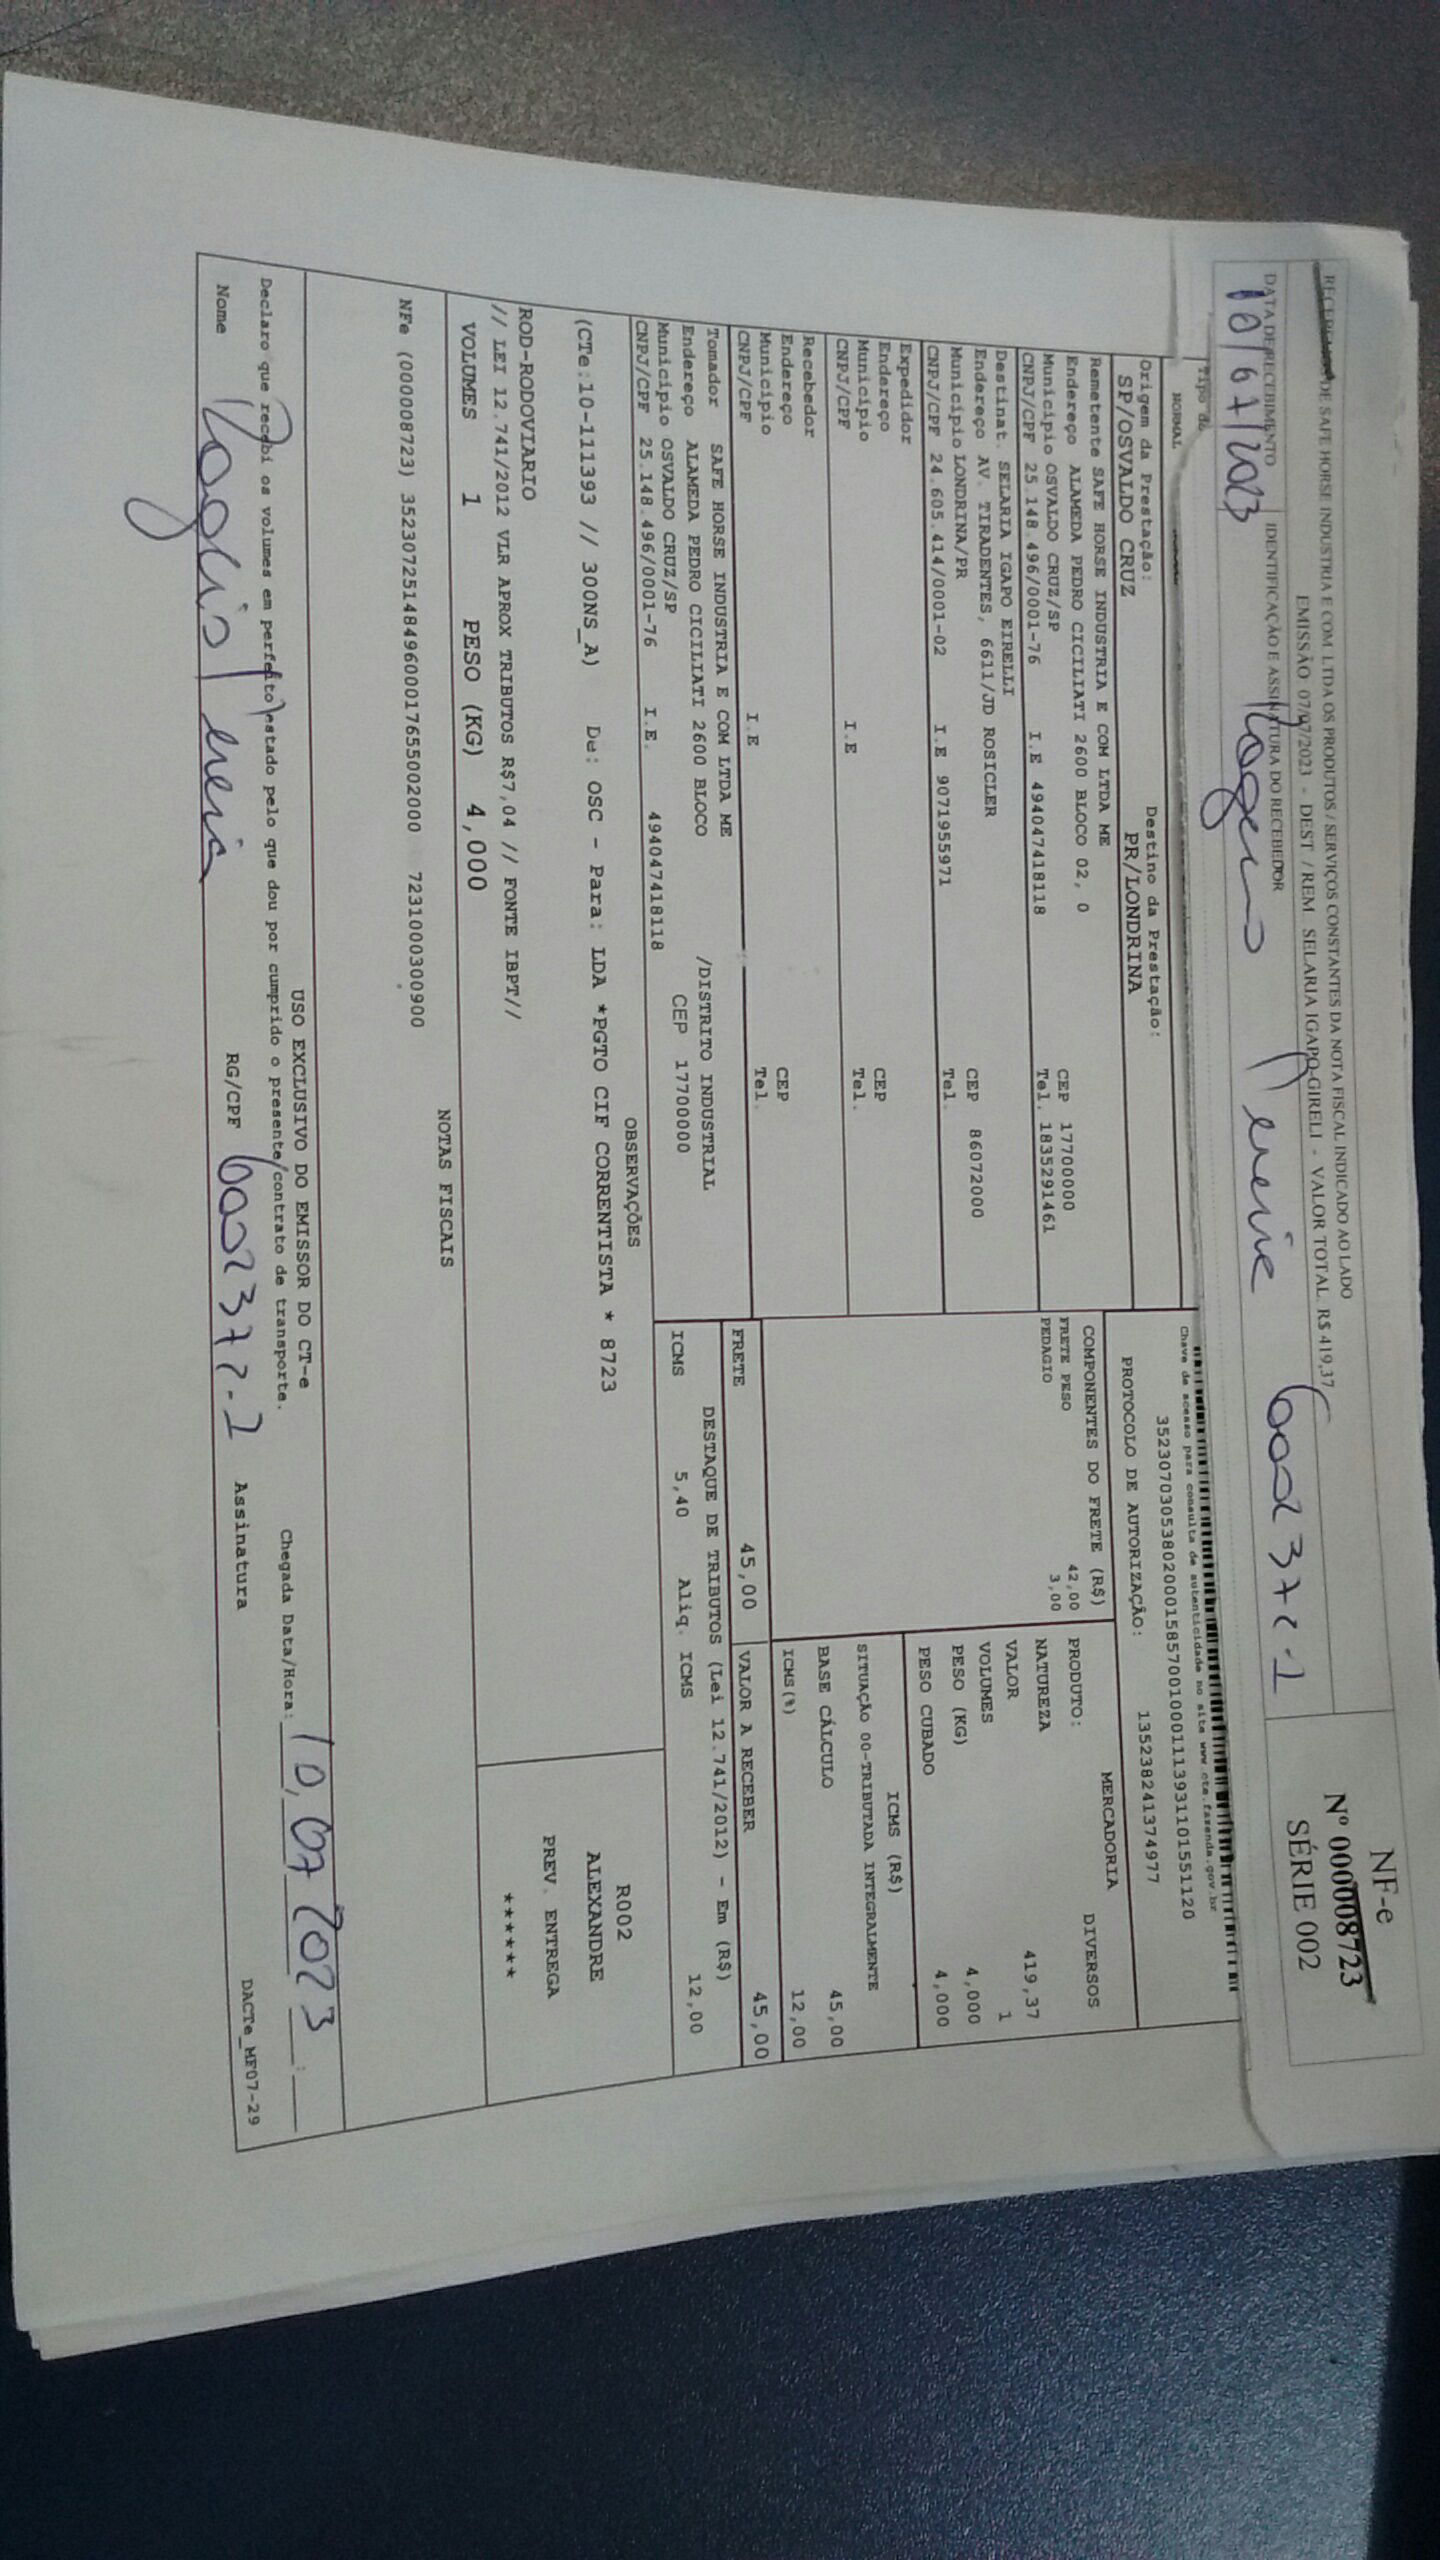 RECEBEMOS DE SAFE HORSE INDUSTRIA E COM LTDA OS PRODUTOS / SERVIÇOS CONSTANTES DA NOTA FISCAL INDICADO AO LADO
EMISSÃO 07/07/2023 - DEST / REM SELARIA IGAPO GIRELI - VALOR TOTAL R$ 419,37
DATA DE RECEBIMENTO
10/07/2023
IDENTIFICAÇÃO E ASSINATURA DO RECEBEDOR
NF-e
Nº 000008723
SÉRIE 002
Tipo d
NORMAL
Chave de acesso para consulta de autenticidade no site www.cte.fazenda.gov.br
35230703053802000158570010001113931101551120
PROTOCOLO DE AUTORIZAÇÃO: 135238241374977
Origem da Prestação: Destino da Prestação:
SP/OSVALDO CRUZ PR/LONDRINA
Remetente SAFE HORSE INDUSTRIA E COM LTDA ME
Endereço ALAMEDA PEDRO CICILIATI 2600 BLOCO 02, 0 CEP 17700000
Município OSVALDO CRUZ/SP Tel. 1835291461
CNPJ/CPF 25.148.496/0001-76 I.E 494047418118
Destinat. SELARIA IGAPO EIRELLI
Endereço AV. TIRADENTES, 6611/JD ROSICLER CEP 86072000
Município LONDRINA/PR Tel.
CNPJ/CPF 24.605.414/0001-02 I.E 9071955971
Expedidor
Endereço CEP
Município Tel.
CNPJ/CPF I.E
Recebedor
Endereço CEP
Município Tel.
CNPJ/CPF I.E
Tomador SAFE HORSE INDUSTRIA E COM LTDA ME
Endereço ALAMEDA PEDRO CICILIATI 2600 BLOCO /DISTRITO INDUSTRIAL
Município OSVALDO CRUZ/SP CEP 17700000
CNPJ/CPF 25.148.496/0001-76 I.E. 494047418118
COMPONENTES DO FRETE (R$)
FRETE PESO 42,00
PEDAGIO 3,00
MERCADORIA
PRODUTO: DIVERSOS
NATUREZA
VALOR 419,37
VOLUMES 1
PESO (KG) 4,000
PESO CUBADO 4,000
ICMS (R$)
SITUAÇÃO 00-TRIBUTADA INTEGRALMENTE
BASE CÁLCULO 45,00
ICMS(%) 12,00
FRETE 45,00 VALOR A RECEBER 45,00
DESTAQUE DE TRIBUTOS (Lei 12.741/2012) - Em (R$)
ICMS 5,40 Aliq. ICMS 12,00
OBSERVAÇÕES
(CTe:10-111393 // 300NS_A) De: OSC - Para: LDA *PGTO CIF CORRENTISTA * 8723
ROD-RODOVIARIO
// LEI 12.741/2012 VLR APROX TRIBUTOS R$7,04 // FONTE IBPT//
R002
ALEXANDRE
PREV. ENTREGA
******
VOLUMES 1 PESO (KG) 4,000
NOTAS FISCAIS
NFe (000008723) 3523072514849600017655002000 7231000300900
USO EXCLUSIVO DO EMISSOR DO CT-e
Declaro que recebi os volumes em perfeito estado pelo que dou por cumprido o presente contrato de transporte.
Chegada Data/Hora: 10,07 2023 __:__
Nome RG/CPF Assinatura
DACTe_MF07-29